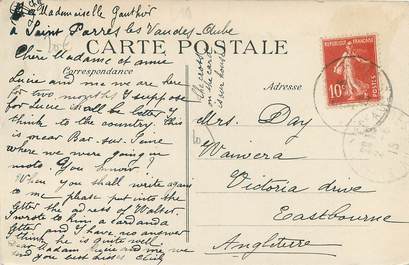 chez Mademoiselle Gauthier
à Saint Parres les Vaudes. Aube
CARTE POSTALE
Correspondance
Adresse
Chère Madame et amie
Lucie and me we are here
for two months I suppose
for Lucie shall be better I
think to the country. This
is near Bar-sur-Seine
where we were going in
moto. You know
When you shall write again
to me please put into the
letter the adress of Walter.
I wrote to him a card and a
letter and I have no answer
I think he is quite well
Dear Madam Lucie and me, we
and you best kisses
The cross
on the card
is our house
to
Mrs. Day
Wanvera
Victoria drive
Eastbourne
Angleterre
REPUBLIQUE FRANÇAISE
10c
POSTES